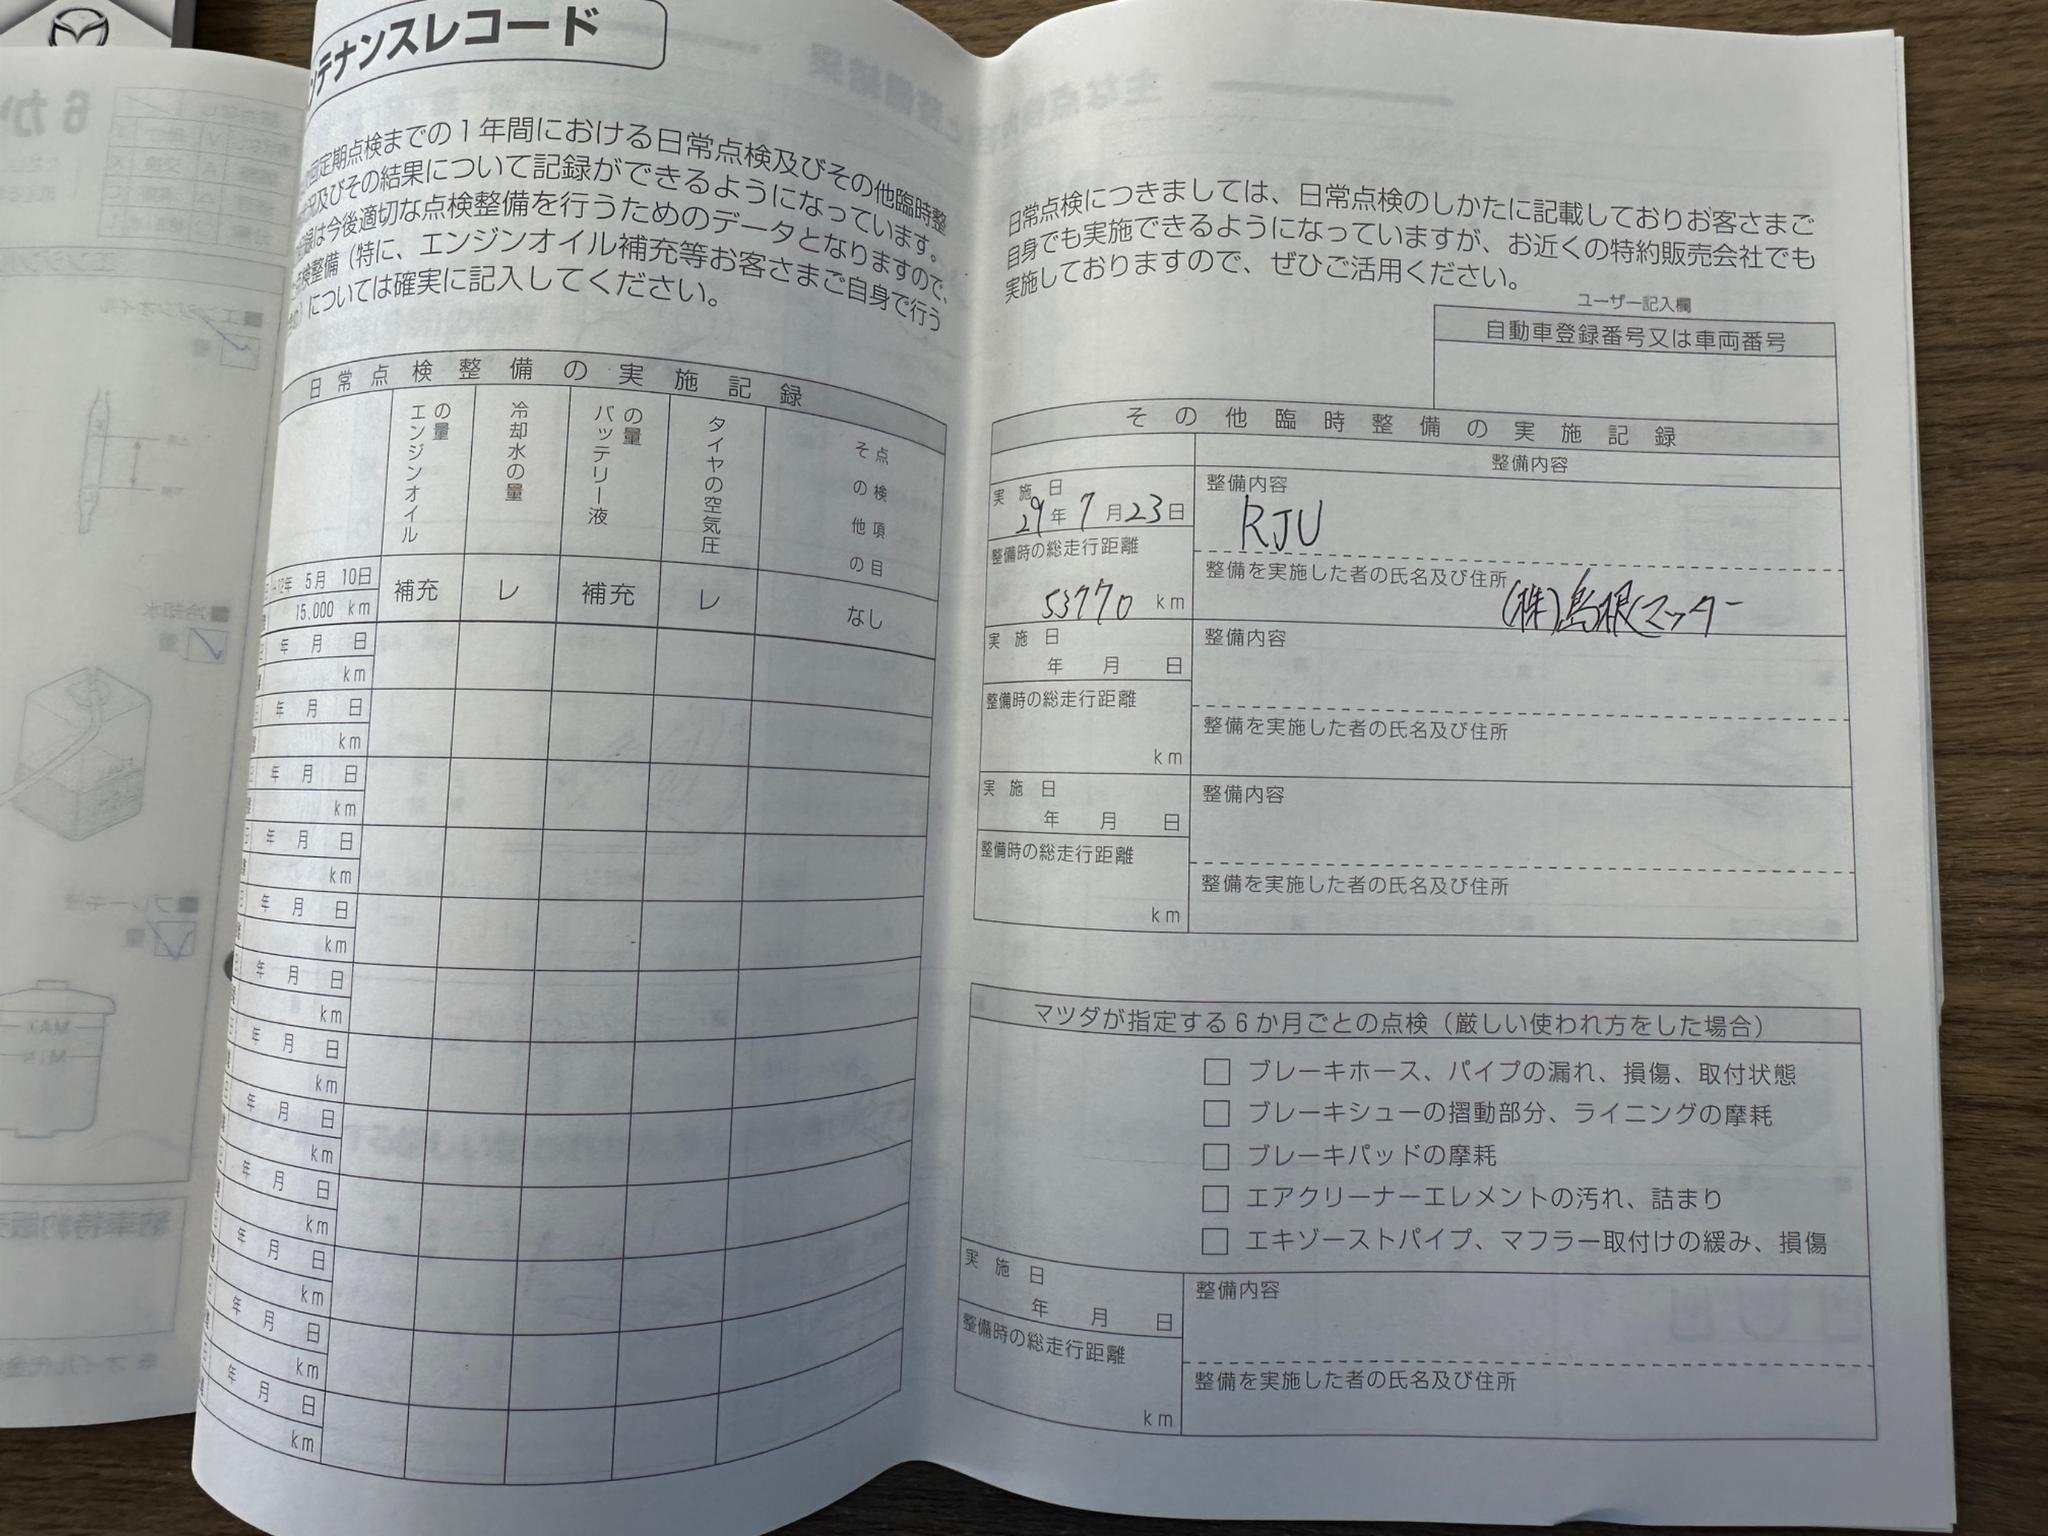 ンテナンスレコード
回定期点検までの1年間における日常点検及びその他臨時整
況及びその結果について記録ができるようになっています。
録は今後適切な点検整備を行うためのデータとなりますので、
点検整備（特に、エンジンオイル補充等お客さまご自身で行う
については確実に記入してください。
日常点検整備の実施記録
エンジンオイルの量
冷却水の量
バッテリー液の量
タイヤの空気圧
その他の
点検項目
年 5月 10日
補充
レ
補充
レ
なし
15.000 km
年 月 日
km
年 月 日
km
年 月 日
km
年 月 日
km
年 月 日
km
年 月 日
km
年 月 日
km
年 月 日
km
年 月 日
km
年 月 日
km
年 月 日
km
年 月 日
km
日常点検につきましては、日常点検のしかたに記載しておりお客さまご
自身でも実施できるようになっていますが、お近くの特約販売会社でも
実施しておりますので、ぜひご活用ください。
ユーザー記入欄
自動車登録番号又は車両番号
その他臨時整備の実施記録
整備内容
実施日
29年 7月23日
整備時の総走行距離
53770 km
整備内容
RJU
整備を実施した者の氏名及び住所
(株)島根マツダー
実施日
年 月 日
整備時の総走行距離
km
整備内容
整備を実施した者の氏名及び住所
実施日
年 月 日
整備時の総走行距離
km
整備内容
整備を実施した者の氏名及び住所
マツダが指定する6か月ごとの点検（厳しい使われ方をした場合）
□ ブレーキホース、パイプの漏れ、損傷、取付状態
□ ブレーキシューの摺動部分、ライニングの摩耗
□ ブレーキパッドの摩耗
□ エアクリーナーエレメントの汚れ、詰まり
□ エキゾーストパイプ、マフラー取付けの緩み、損傷
実施日
年 月 日
整備時の総走行距離
km
整備内容
整備を実施した者の氏名及び住所